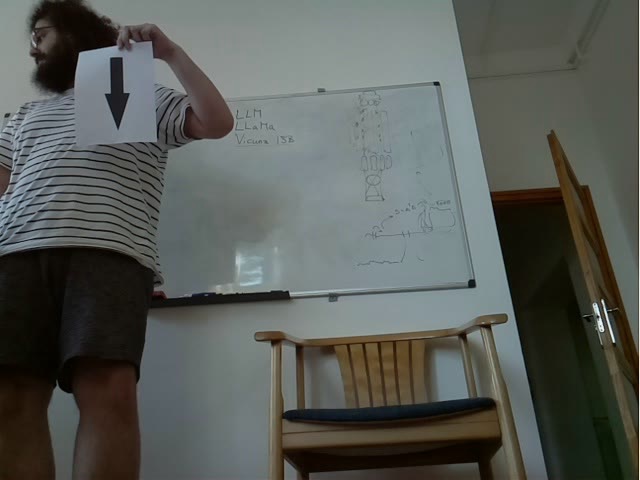 LLM
LLaMa
Vicuna 13B